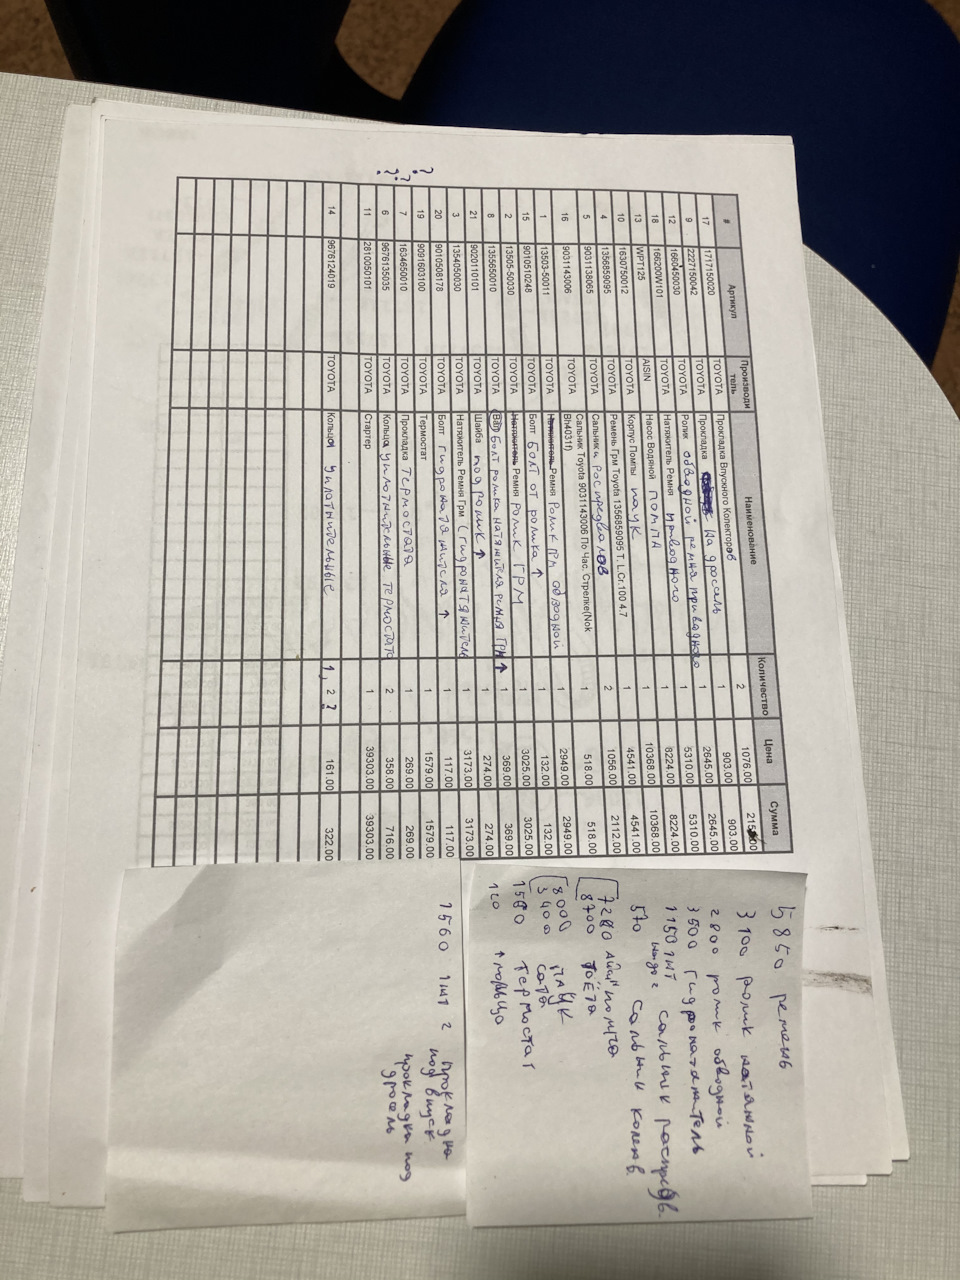 # Артикул Производитель Наименование Количество Цена Сумма
17 1717150020 TOYOTA Прокладка Впускного Колекторов 2 1076.00
9 2227150042 TOYOTA Прокладка на дроссель 1 903.00 903.00
12 1660450030 TOYOTA Ролик обводной ремня приводного 1 2645.00 2645.00
18 166200W101 TOYOTA Натяжитель Ремня приводного 1 5310.00 5310.00
13 WPT125 AISIN Насос Водяной помпа 1 8224.00 8224.00
10 1630750012 TOYOTA Корпус Помпы паук 1 10368.00 10368.00
4 1356859095 TOYOTA Ремень Грм Toyota 1356859095 T. L.Cr.100 4.7 1 4541.00 4541.00
5 9031138065 TOYOTA Сальники роспредвалов 2 1056.00 2112.00
16 9031143006 TOYOTA Сальник Toyota 9031143006 По Час. Стрелке(Nok Bh4031f) 1 518.00 518.00
1 13503-50011 TOYOTA Натяжитель Ремня Ролик ГРМ обводной 1 2949.00 2949.00
15 9010510248 TOYOTA Болт болт от ролика ↑ 1 132.00 132.00
2 13505-50030 TOYOTA Натяжитель Ремня Ролик ГРМ 1 3025.00 3025.00
8 1355650010 TOYOTA Вал болт ролика натяжителя ремня ГРМ ↑ 1 369.00 369.00
21 9020110101 TOYOTA Шайба под ролик ↑ 1 274.00 274.00
3 1354050030 TOYOTA Натяжитель Ремня Грм (гидронатяжитель 1 3173.00 3173.00
20 9010508178 TOYOTA Болт гидронатяжителя ↑ 1 117.00 117.00
? 19 9091603100 TOYOTA Термостат 1 1579.00 1579.00
? 7 1634650010 TOYOTA Прокладка термостата 1 269.00 269.00
? 6 9676135035 TOYOTA Кольца уплотнительные термостата 2 358.00 716.00
11 2810050101 TOYOTA Стартер 1 39303.00 39303.00
14 9676124019 TOYOTA Кольца уплотнительные 1, 2 ? 161.00 322.00
5850 ремень
3100 ролик натяжной
2800 ролик обводной
3500 гидронатяжитель
1150 1шт сальник распредв.
надо 2
570 сальник коленв.
7200 Айсин помпа
8700 тоёта
8000 паук
3400 сат
1580 термостат
120 ↑ кольцо
1560 1шт 2 прокладка под впуск
прокладка под дросель